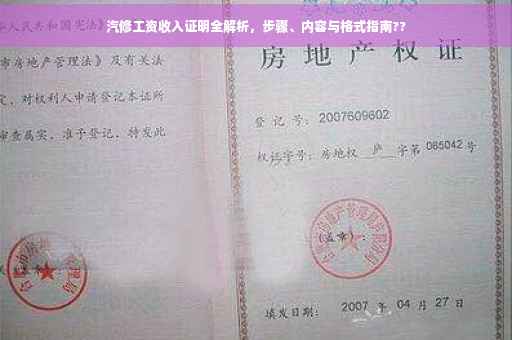 汽修工资收入证明全解析，步骤、内容与格式指南??
人民共和国宪法》
市房地产管理法》及有关法
定，对权利人申请登记本证所
审查属实，准予登记，特发此
房地产权证
登记号：2007609602
权证字号：房地权 庐 字第 065042 号
(盖章)：
填发日期：2007 年 04 月 27 日